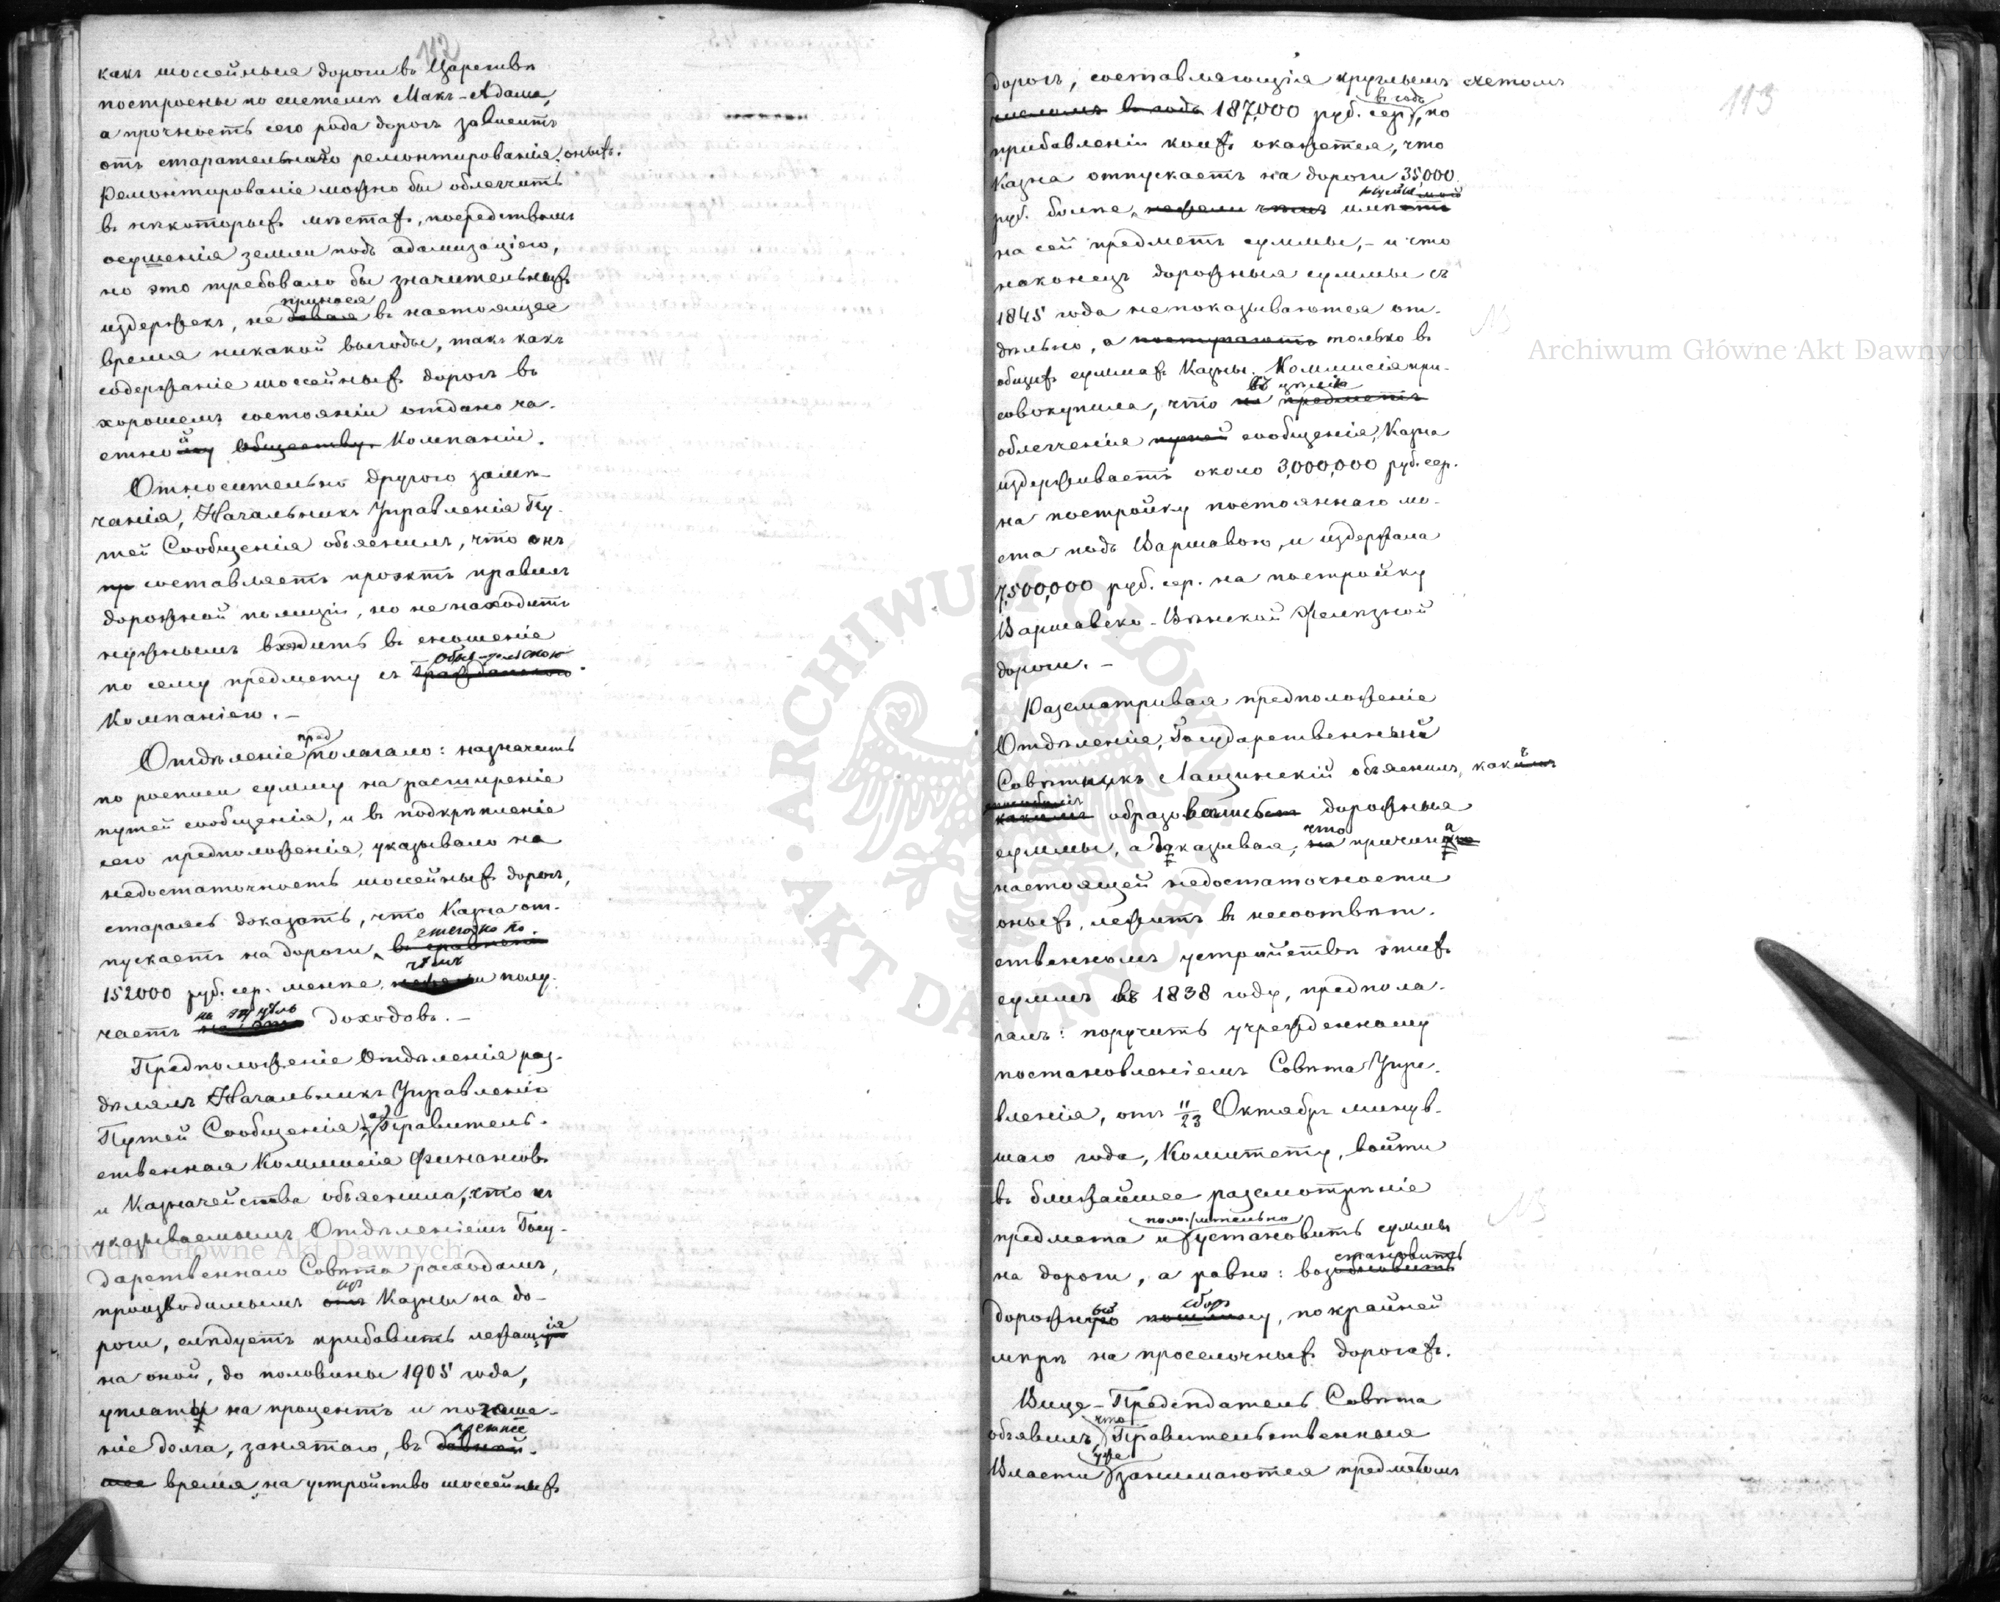 112
какъ шоссейныя дороги въ Царствѣ
построены по системѣ Макъ-Адама,
а прочность сего рода дорогъ зависитъ
отъ старательнаго ремонтированія оныхъ.
Ремонтированіе можно бы облегчить
въ нѣкоторыхъ мѣстахъ, посредствомъ
осушенія земли подъ адамизаціею,
но это требовало бы значительныхъ
принося
издержекъ, не давая въ настоящее
время никакой выгоды, такъ какъ
содержаніе шоссейныхъ дорогъ въ
хорошемъ состояніи отдано ча-
стной Обществу Компаніи.
Относительно другого замѣ-
чанія, Начальникъ Управленія Пу-
тей Сообщенія объяснилъ, что онъ
пр составляетъ проэктъ правилъ
дорожной полиціи, но не находитъ
нужнымъ входить въ сношеніе
по сему предмету съ Гражданскою
Компаніею. –
пред
Отдѣленіе полагало: назначить
по росписи сумму на расширеніе
путей сообщенія, и въ подкрѣпленіе
сего предположенія, указывало на
недостаточность шоссейныхъ дорогъ,
стараясь доказать, что Казна от-
ежегодно
пускаетъ на дороги, въ сравненіи
чѣмъ
152000 руб. сер. менѣе, нежели полу-
на эту цѣль
чаетъ доходовъ. –
Предположеніе Отдѣленія раз-
дѣлялъ Начальникъ Управленія
Путей Сообщенія, а Правитель-
ственная Коммисія Финансовъ
и Казначейства объяснила, что къ
указываемымъ Отдѣленіемъ Госу-
дарственнаго Совѣта расходамъ,
изъ
производимымъ отъ Казны на до-
роги, слѣдуетъ прибавить лежащія
на оной, до половины 1905 года,
уплаты на процентъ и погаше-
прежнее
ніе долга, занятаго, въ давнѣй-
шее время на устройство шоссейныхъ
113
дорогъ, составляющія круглымъ счетомъ
въ годъ
числомъ въ годъ 187,000 руб. сер., по
прибавленіи коихъ окажется, что
Казна отпускаетъ на дороги 35,000
руб. болѣе, нежели чѣмъ имѣетъ
на сей предметъ суммы, – и что
наконецъ дорожныя суммы съ
1845 года не показываются от-
дѣльно, а поступаютъ только въ
общихъ суммахъ Казны. Коммисія при-
цѣлію
совокупила, что на предметъ
облегченія путей сообщенія, Казна
издерживаетъ около 3,000,000 руб. сер.
на постройку постояннаго мо-
ста подъ Варшавою, и издержала
7,500,000 руб. сер. на постройку
Варшавско-Вѣнской Желѣзной
дороги. –
Разсматривая предположеніе
Отдѣленія, Государственный
Совѣтникъ Лащинскій объяснилъ, какъ
образовались дорожныя
что
суммы, а доказывая, на причина
настоящей недостаточности
оныхъ, лежитъ въ несоотвѣт-
ственномъ устройствѣ этихъ
суммъ въ 1838 году, предпола-
галъ: поручить учрежденному
постановленіемъ Совѣта Упра-
вленія, отъ 11/23 Октября минув-
шаго года, Комитету, войти
въ ближайшее разсмотрѣніе
положительно
предмета и установить суммы
становить
на дороги, а равно: возобновить
сборъ
дорожную пошлину, по крайней
мѣрѣ на проселочныхъ дорогахъ.
Вице-Предсѣдатель Совѣта
что
объявилъ Правительственныя
уже
Власти занимаются предметомъ
Archiwum Główne Akt Dawnych
Archiwum Główne Akt Dawnych
ARCHIWUM GŁÓWNE AKT DAWNYCH